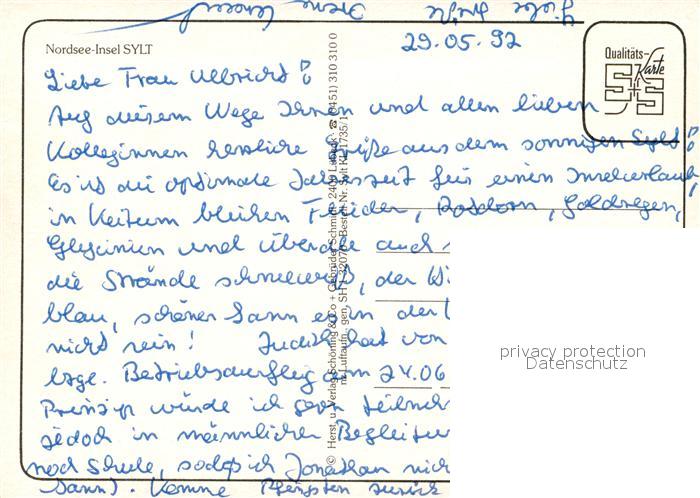 Liebe Grüße Irene
29.05.92
Nordsee-Insel SYLT
Qualitäts-
Karte
S+S
Liebe Frau Ulbricht!
Auf diesem Wege Ihnen und allen lieben
Kolleginnen herzliche Grüße aus dem sonnigen Sylt!
Es ist die optimale Jahreszeit für einen Inselurlaub,
in Keitum blühen Flieder, Rotdorn, Goldregen,
Glyzinien und überall auch
die Strände schneeweiß, der
blau, schöner kann es in der
nicht sein! Judith hat von
bzgl. Betriebsausflug am 24.06
Prinzip würde ich gern teilneh
jedoch in männlicher Begleitu
noch Schule, sodaß ich Jonathan nich
kann). Komme Pfingsten zurück
© Herst. u. Verlag Schöning & Co + Gebrüder Schmidt · 2400 Lübeck · ☎ (0451) 310 310 0
privacy protection
Datenschutz